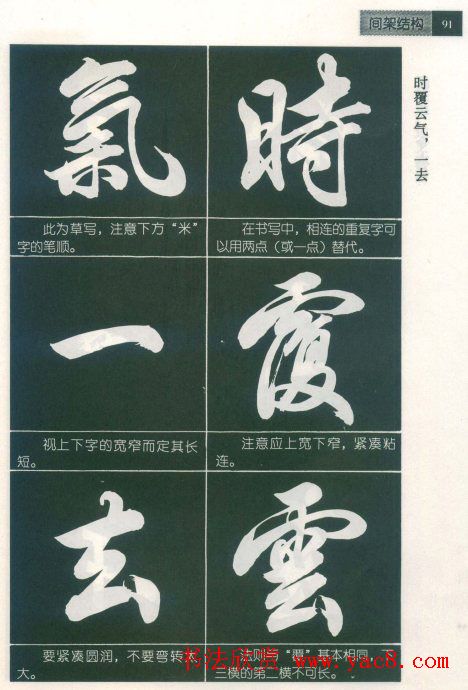 间架结构 91
时覆云气，一去
時
在书写中，相连的重复字可
以用两点（或一点）替代。
覆
注意应上宽下窄，紧凑粘
连。
雲
法则与“覆”基本相同，下
三横的第二横不可长。
氣
此为草写，注意下方“米”
字的笔顺。
一
视上下字的宽窄而定其长
短。
去
要紧凑圆润，不要弯转太
大。
书法欣赏 www.yac8.com